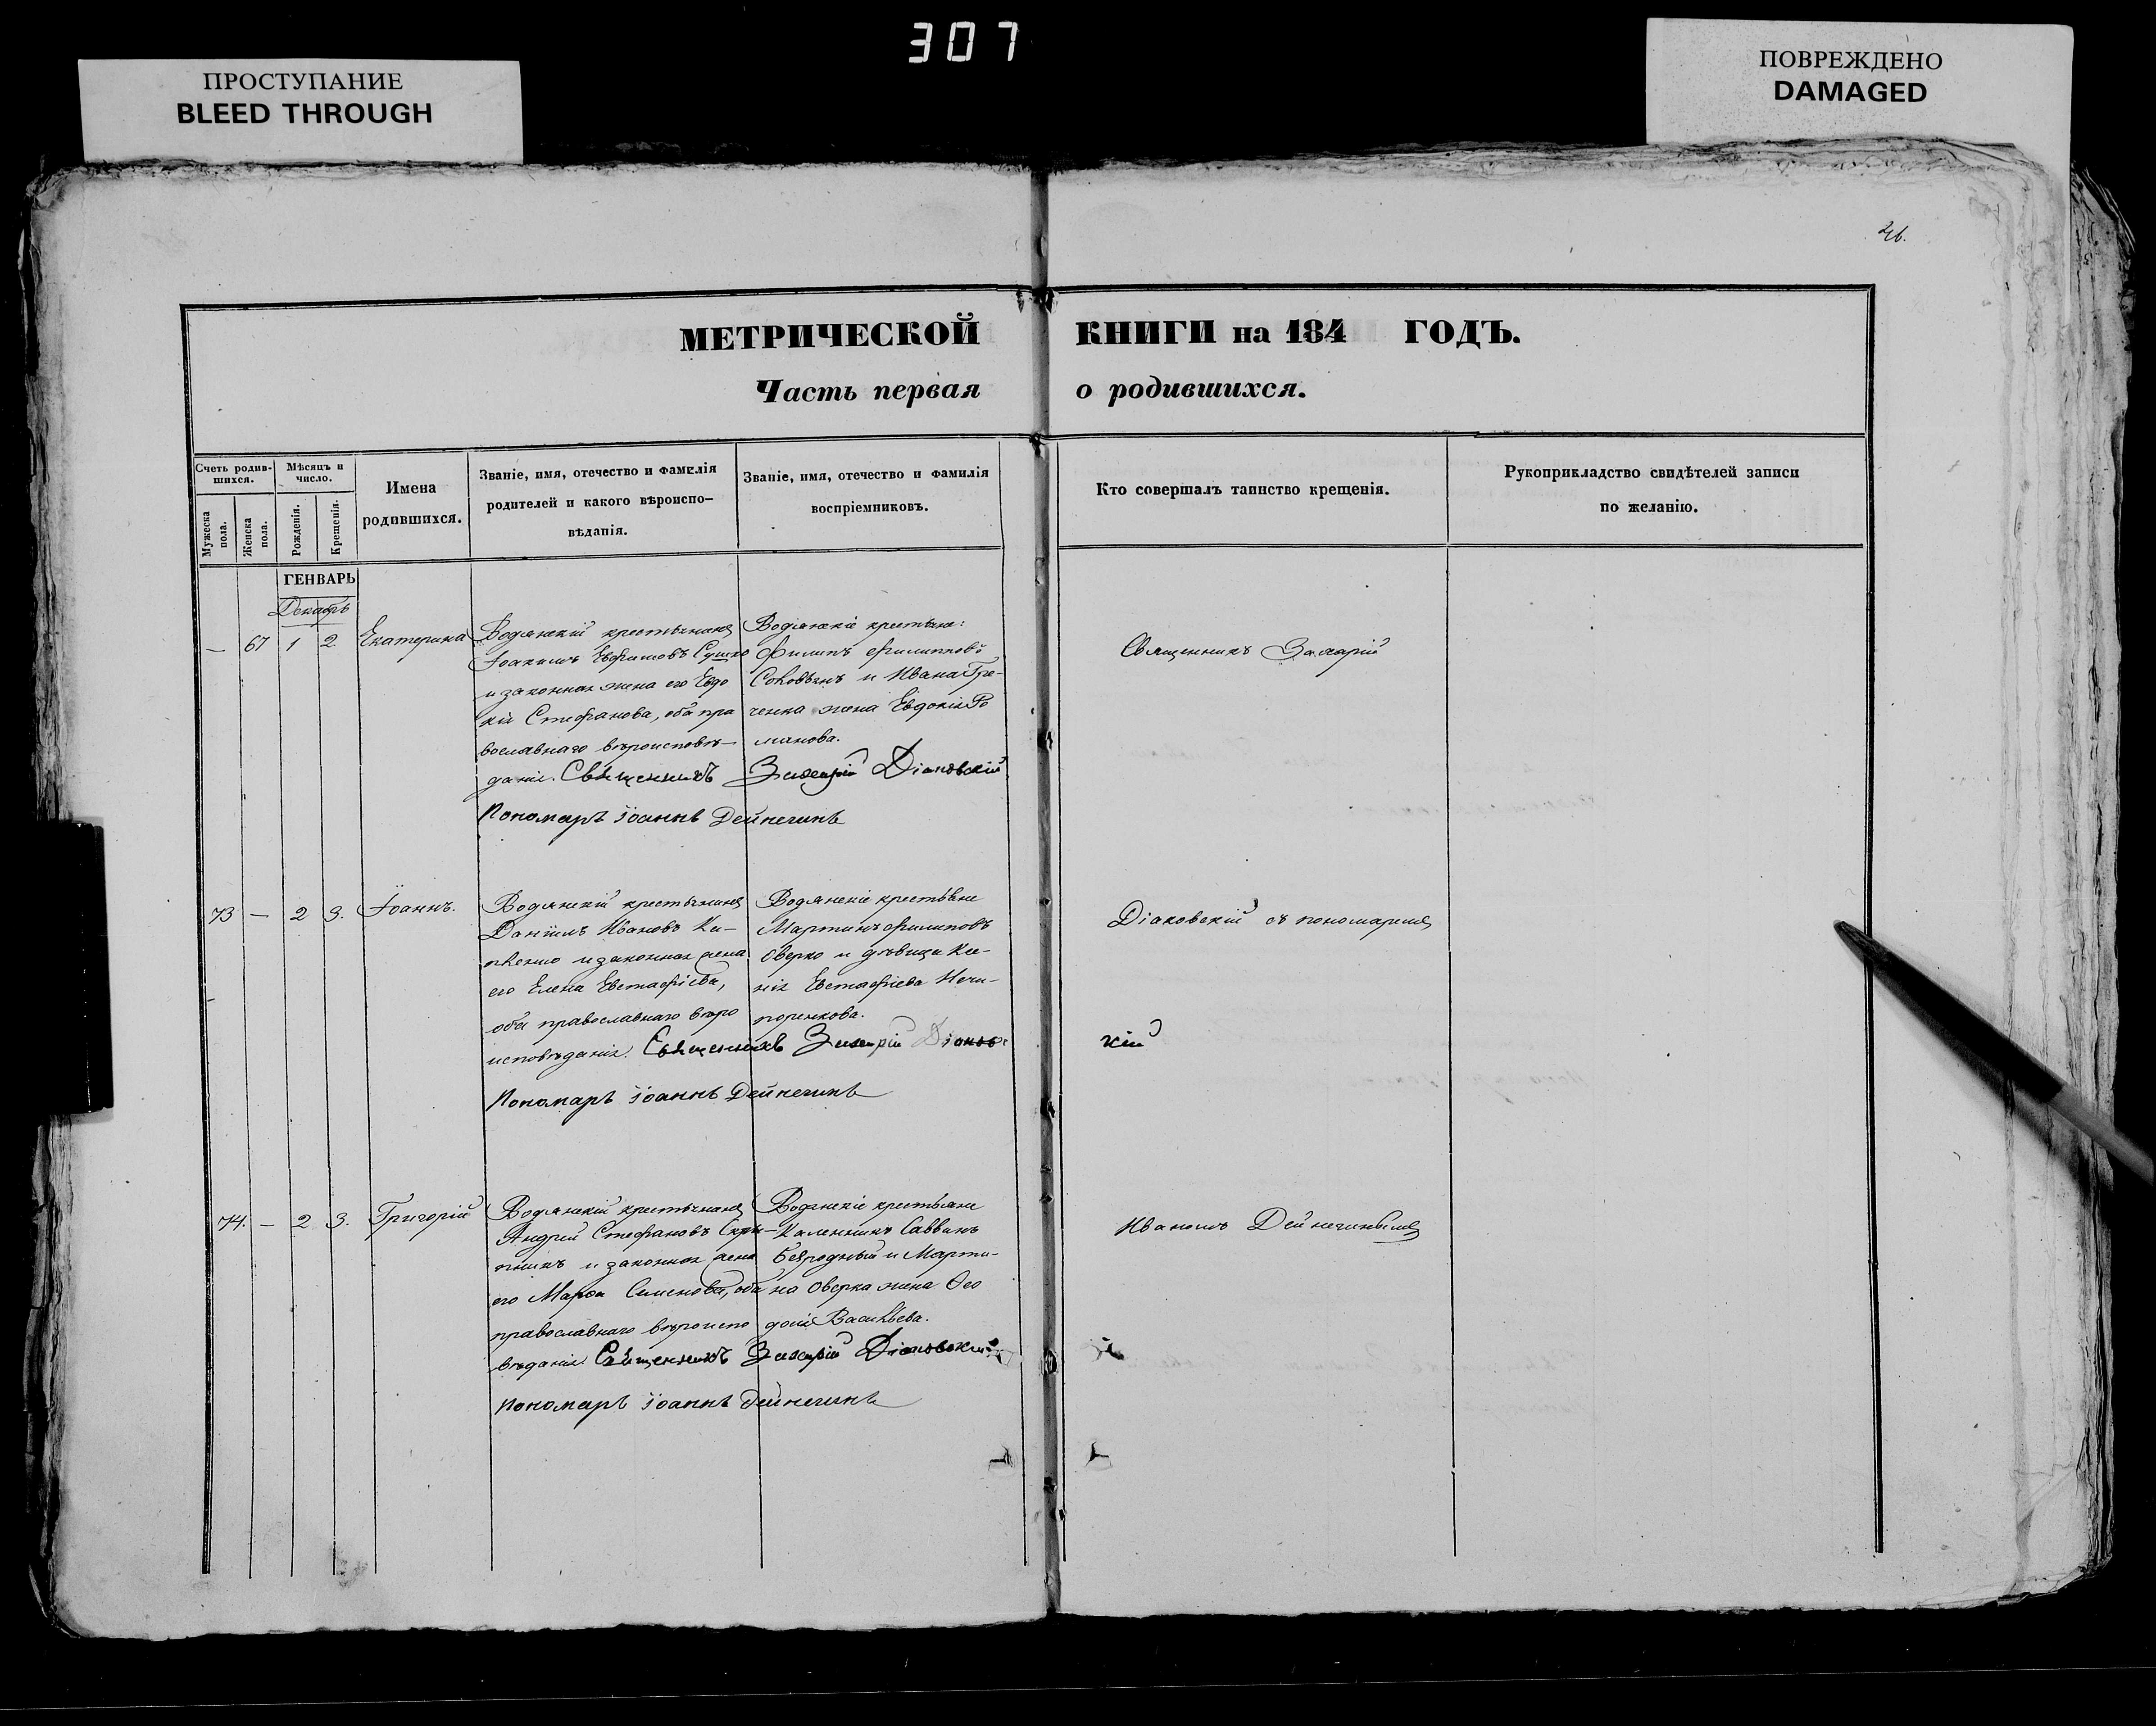 307
ПРОСТУПАНИЕ
BLEED THROUGH
ПОВРЕЖДЕНО
DAMAGED
МЕТРИЧЕСКОЙ КНИГИ на 184 ГОДЪ.
Часть первая о родившихся.
Счетъ родив-
шихся.
Мужеска
пола.
Женска
пола.
Мѣсяцъ и
число.
Рожденія.
Крещенія.
Имена
родившихся.
Званіе, имя, отечество и фамилія
родителей и какого вѣроиспо-
вѣданія.
Званіе, имя, отечество и фамилія
воспріемниковъ.
Кто совершалъ таинство крещенія.
Рукоприкладство свидѣтелей записи
по желанію.
ГЕНВАРЬ
Декабрь
— 67 1 2 Екатерина
Водянскій крестьянинъ
Іоакимъ Евфимовъ Сушко
и законная жена его Евдо
кія Стефанова, оба пра
вославнаго вѣроисповѣ-
данія. Священникъ Захарій Діаковскій
Пономарь Іоаннъ Дейнечинъ
Водянскіе крестьяне:
Филипъ Филипповъ
Соловьянъ и Ивана Гре-
ченка жена Евдокія Ро
манова.
Священникъ Захарій
73 — 2 3. Іоаннъ.
Водянскій крестьянинъ
Даніилъ Ивановъ
и законная жена
его Елена Евстафіева,
оба православнаго вѣро
исповѣданія. Священникъ Захарій Діаковс
кій
Пономарь Іоаннъ Дейнечинъ
Водянскіе крестьяне
Мартинъ Филиповъ
Оверко и дѣвица Ксе-
нія Евстафіева Нечи-
поренкова.
Діаковскій съ пономаремъ
74. — 2 3. Григорій
Водянскій крестьянинъ
Андрей Стефановъ Скры-
пникъ и законная жена
его Марфа Семенова, оба
православнаго вѣроиспо
вѣданія. Священникъ Захарій Діаковскій
Пономарь Іоаннъ Дейнечинъ
Водянскіе крестьяне
Каленникъ Саввинъ
Безродный и Марти-
на Оверка жена Ѳео
досія Васильева.
Иваномъ Дейнечинымъ